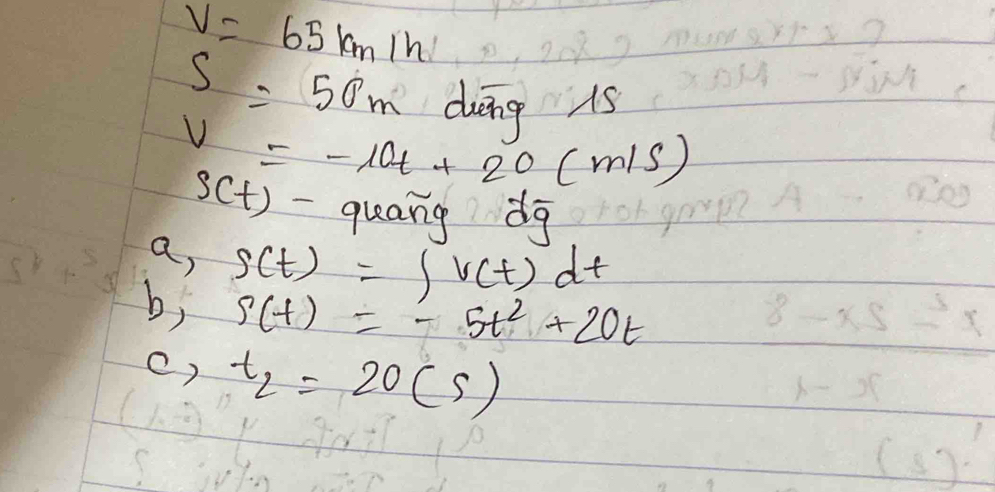 V = 65 km/h
S = 50m dừng 1s
V = -10t + 20 (m/s)
S(t) - quãng đg
a, S(t) = ∫ v(t) dt
b, S(t) = - 5t² + 20t
c, t₂ = 20 (s)